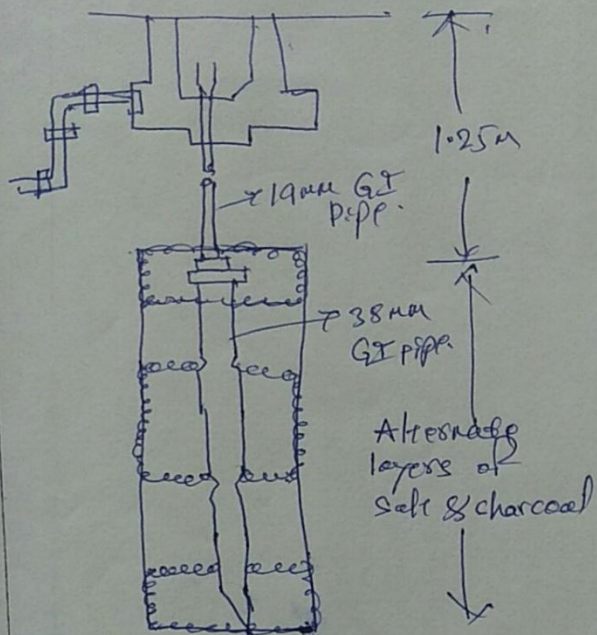 1.25M
19mm GI
pipe.
38mm
GI pipe.
Alternate
layers of
Salt & charcoal